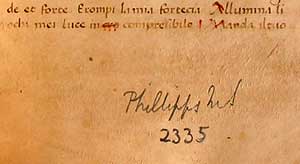 de et forte Erompi la mia fortecia Allumina li
ochi mei luce in compresibile Manda il tuo
Phillipps MS
2335